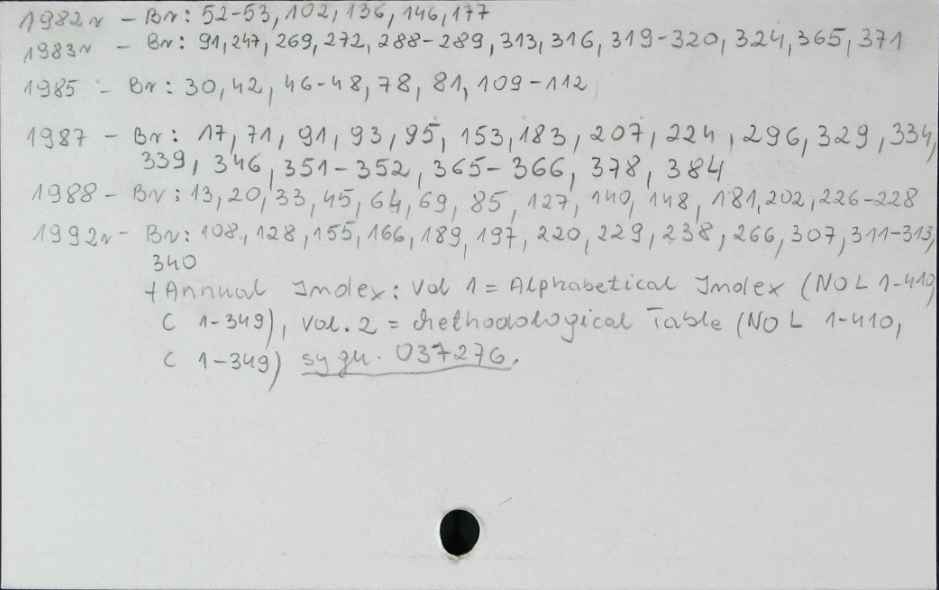 1982r - Br: 52-53, 102, 136, 146, 177
1983r - Br: 91, 247, 269, 272, 288-289, 313, 316, 319-320, 324, 365, 371
1985 - Br: 30, 42, 46-48, 78, 81, 109-112
1987 - Br: 17, 71, 91, 93, 95, 153, 183, 207, 224, 296, 329, 334,
339, 346, 351-352, 365-366, 378, 384
1988 - Br: 13, 20, 33, 45, 64, 69, 85, 127, 140, 148, 181, 202, 226-228
1992r - Br: 108, 128, 155, 166, 189, 197, 220, 229, 238, 266, 307, 311-313,
340
+ Annual Index: Vol 1 = Alphabetical Index (NO L 1-410
C 1-349), Vol. 2 = Methodological Table (NO L 1-410,
C 1-349) sygn. 037276.